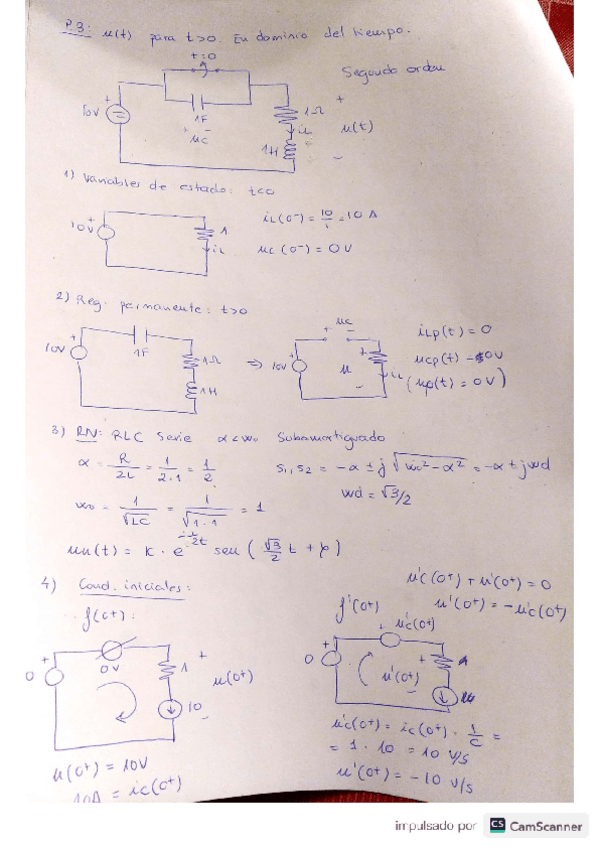 P.3: u(t) para t>0. En dominio del tiempo.
t=0
Segundo orden
10V
+
1F
+ -
uc
1Ω
iL
1H
+
u(t)
-
1) Variables de estado: t<0
10V
+
1
iL
iL(0-) = 10/1 = 10 A
uc(0-) = 0V
2) Reg. permanente: t>0
10V
+
1F
1Ω
1H
⇒
10V
+
+ uc -
+
u
-
iL
iLp(t) = 0
ucp(t) = 10V
(up(t) = 0V)
3) RN: RLC Serie α<wo Subamortiguado
α = R/2L = 1/2·1 = 1/2
s1, s2 = -α ± j √wo²-α² = -α ± jwd
wo = 1/√LC = 1/√1·1 = 1
wd = √3/2
un(t) = K · e^-1/2t sen (√3/2 t + φ)
4) Cond. iniciales:
u'c(0+) + u'(0+) = 0
u'(0+) = -u'c(0+)
f(0+):
f'(0+)
0
+
0V
1
10
+
u(0+)
-
0
+
+ u'c(0+)
+
u'(0+)
-
u(0+) = 10V
10A = ic(0+)
u'c(0+) = ic(0+) · 1/C =
= 1 · 10 = 10 V/s
u'(0+) = -10 V/s
impulsado por CS CamScanner